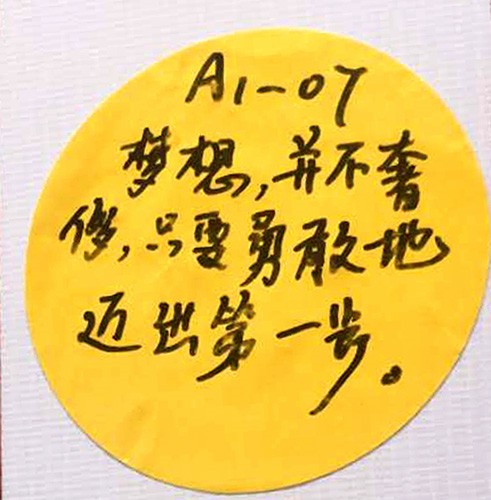 A1-07
梦想,并不奢
侈,只要勇敢地
迈出第一步。